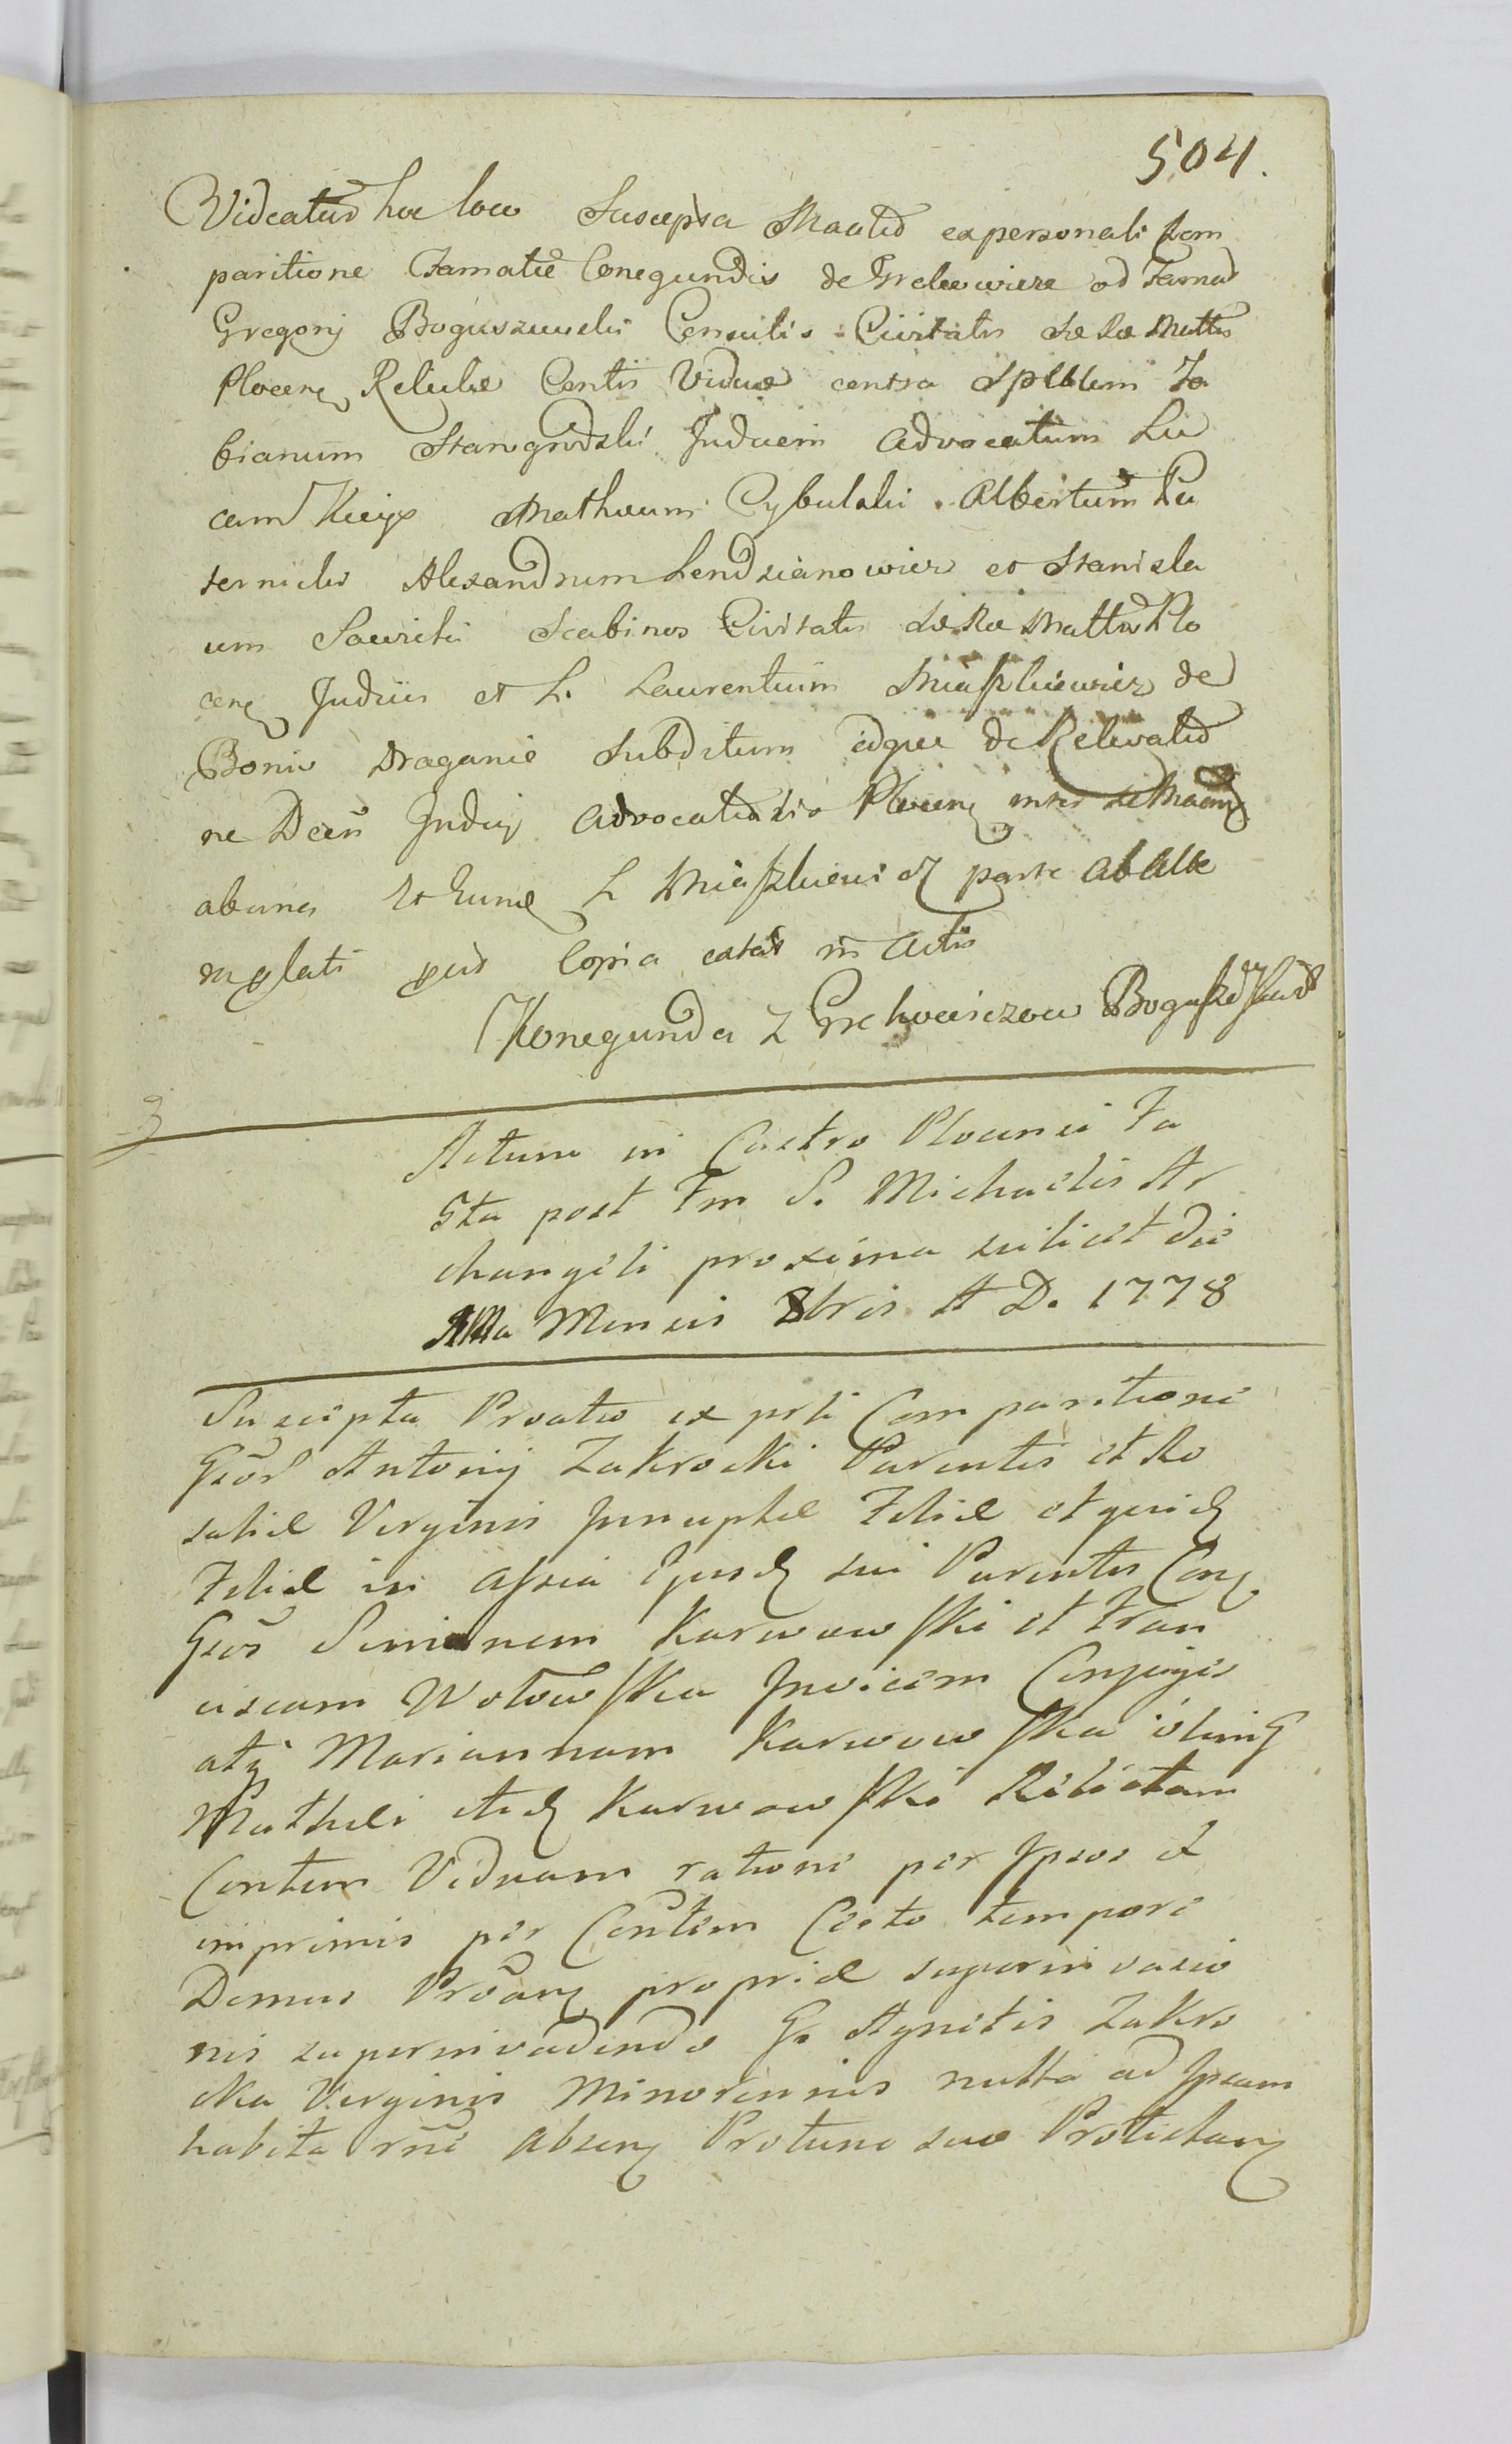 504.
Videatur hoc loco Suscepta Mantio ex personali Com
paritione Famatae Conegundis de Grehowicze od Famat
Gregorij Boguszewski Consulis Civitatis SaeRae Mttis
Plocen Relictae Contis Viduae contra Spbblem Fa
bianum Starogrodzki Judicem Advocatum Lu
cam Kieys Matheum Cybulski Albertum Pa
ternicki Alexandrum Lendzianowicz et Stanisla
um Sawicki Scabinos Civitatis SaeRae Mattis Plo
cen Judicii et L. Laurentium Miaszkiewicz de
Bonis Draganie Subditum idque de Relevatio
ne Decri Judicij Advocatialis Plocen inter
ab una et hunc L Miaszkiewicz parte ab alte
ra lati prt Copia extat in Actis
Konegunda z Grehowiczow Boguszewska
Actum in Castro Plocensi Fe
sta post Fm S. Michaelis Ar
changeli proxima scilicet die
Mensis 8bris A D. 1778
Suscepta Proatio ex prli Comparitione
Gsor Antonij Zakrocki Parentis et Ro
saliae Virginis Innuptae Filiae et quid
Filiae in assia Ejusd sui Parentis Con
Gsos Simonem Karwowski et Fran
ciscam Wolowska Invicem Conjuges
atq Mariannam Karwowska olim G
Mathei itid Karwowski Relictam
Contem Viduam ratione per Ipsos et
imprimis per Contem Certo tempore
Domus Proan propriae superinvasio
nis superinvadendo G. Agnetis Zakro
cka Virginis Minorennis nulla ad Ipsam
habita rne absen Protunc suo Protestan